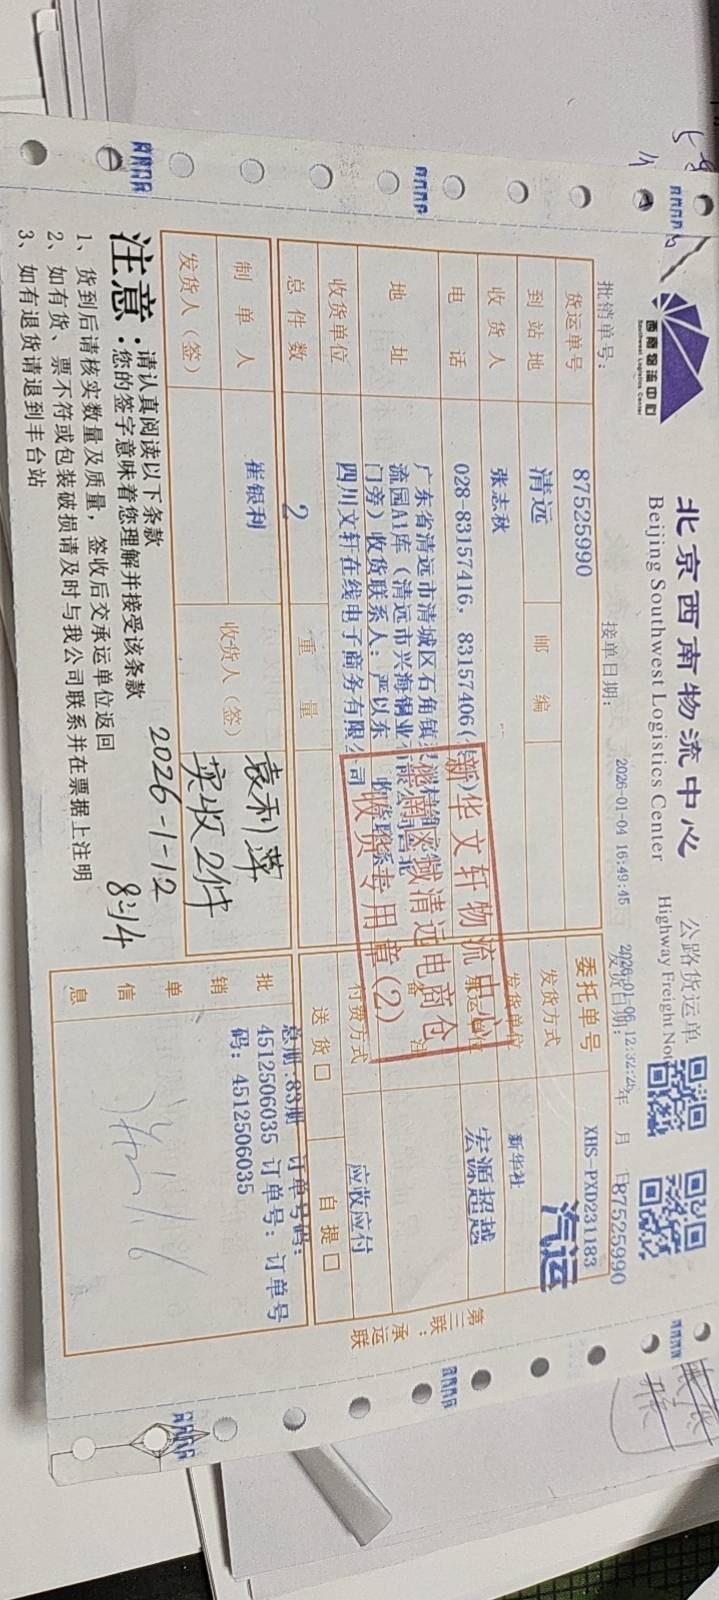 西南物流中心
Southwest Logistics Center
北京西南物流中心
Beijing Southwest Logistics Center
公路货运单
Highway Freight Not
批销单号：
接单日期：
2026-01-04 16:49:45
发货日期：
2026-01-06 12:32:25
年 月
87525990
货运单号
87525990
委托单号
XHS-PXD231183
到站地
清远
邮编
发货方式
汽运
收货人
张志秋
发货单位
新华社
电话
028-83157416、83157406(
宏源超越
地址
广东省清远市清城区石角镇
流园A1库（清远市兴海铜业有限公司西北
门旁）收货联系人：严以东
备注
收货单位
四川文轩在线电子商务有限公司
付费方式
应收应付
总件数
2
重量
送货□
自提□
制单人
崔银利
收货人（签）
袁利萍
实收2件
2026-1-12
8:14
发货人（签）
批销单信息
总册:83册 订单号码:
4512506035 订单号: 订单号
码: 4512506035
新华文轩物流中心
华南区域清远电商仓
收货专用章(2)
第三联：承运联
注意：
请认真阅读以下条款
您的签字意味着您理解并接受该条款
1、货到后请核实数量及质量，签收后交承运单位返回
2、如有货、票不符或包装破损请及时与我公司联系并在票据上注明
3、如有退货请退到丰台站